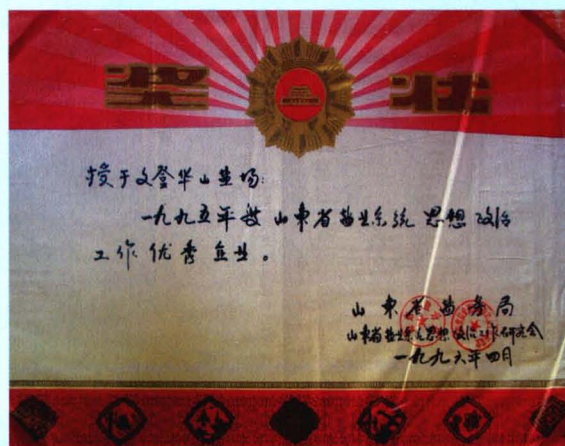 奖状
授于文登华山盐场:
一九九五年被山东省盐业系统思想政治
工作优秀企业。
山东省盐务局
山东省盐业系统思想政治工作研究会
一九九六年四月